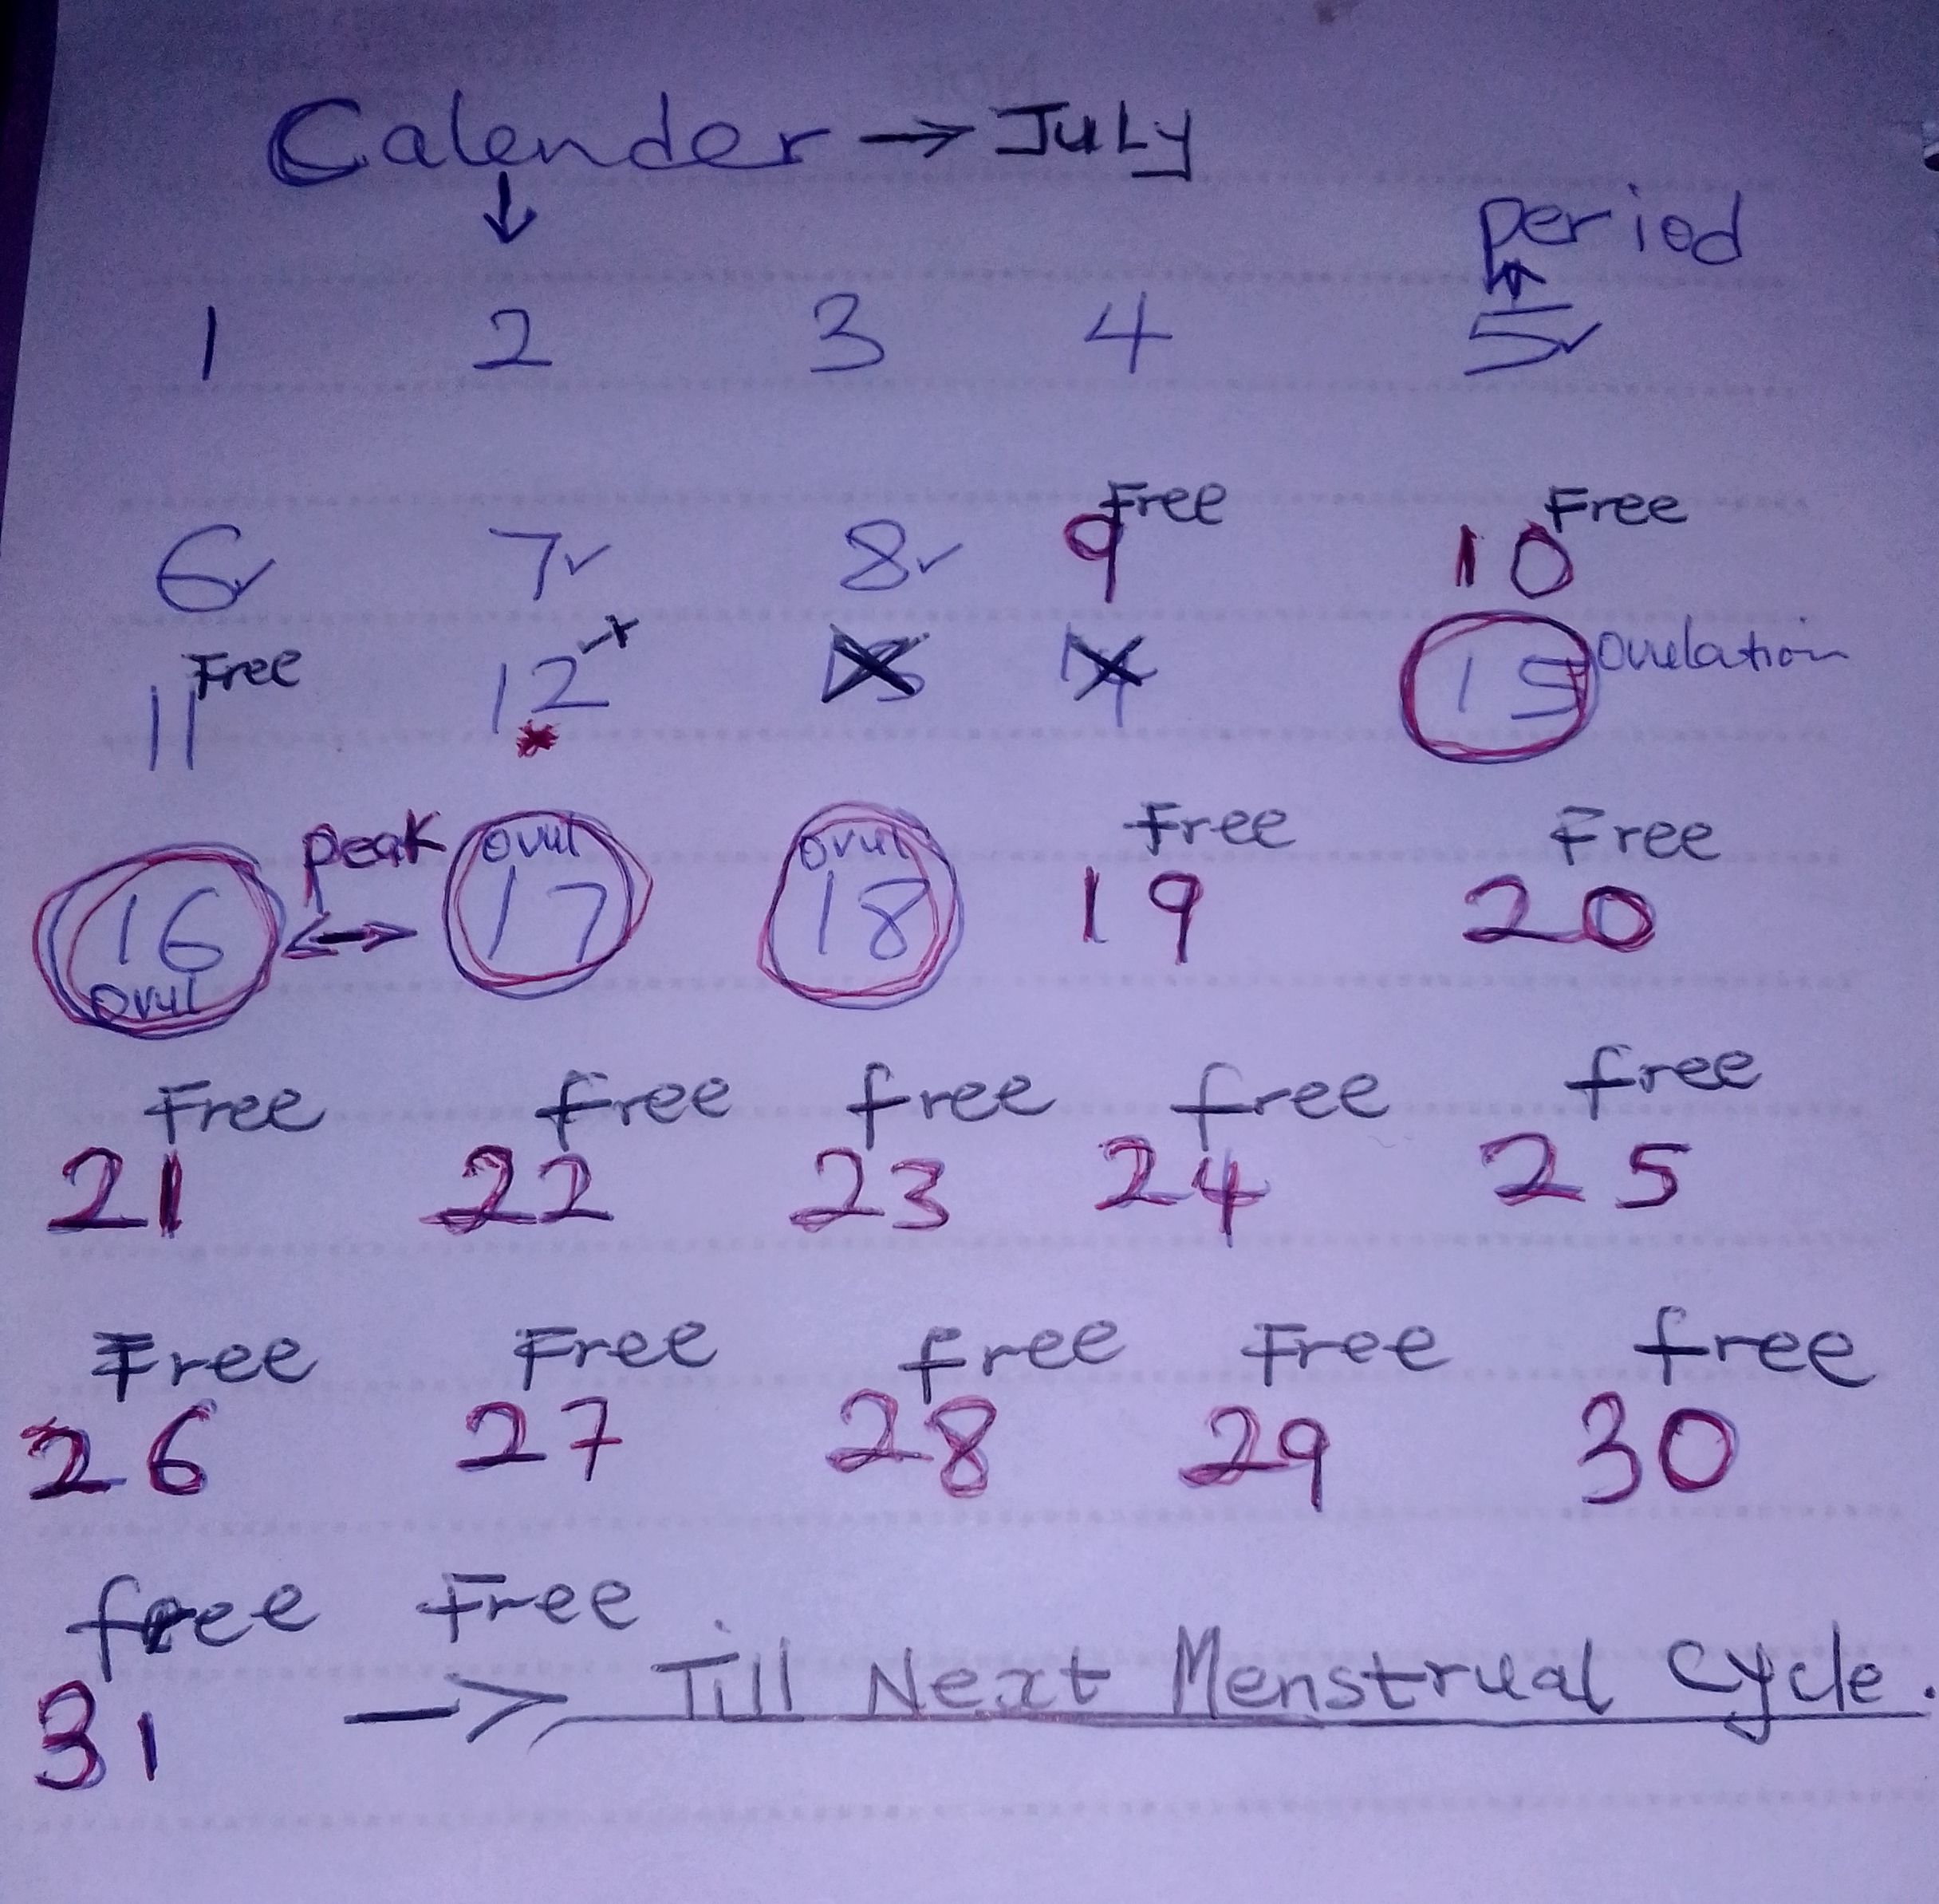 Calender → July
↓
period
↑
1 2 3 4 5✓
Free Free
6✓ 7✓ 8✓ 9 10
Free
11 12✓+ 13 14 15 Ovulation
*
peak ovul ovul Free Free
16 ↔ 17 18 19 20
ovul
Free free free free free
21 22 23 24 25
Free Free free Free free
26 27 28 29 30
free Free
31 → Till Next Menstrual Cycle.